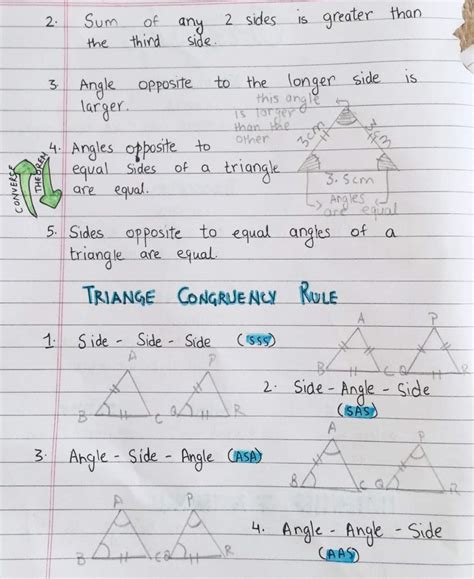 2. Sum of any 2 sides is greater than
the third side.
3. Angle opposite to the longer side is
larger.
this angle
is larger
than the
other
3cm
3.5cm
Angles
are equal
4. Angles opposite to
equal sides of a triangle
are equal.
CONVERCE
THEOREM
5. Sides opposite to equal angles of a
triangle are equal.
TRIANGE CONGRUENCY RULE
1. Side - Side - Side (SSS)
A
P
B
C
Q
R
2. Side - Angle - Side
(SAS)
A
P
B
C
Q
R
3. Angle - Side - Angle (ASA)
A
P
B
C
Q
R
4. Angle - Angle - Side
(AAS)
A
P
B
C
Q
R